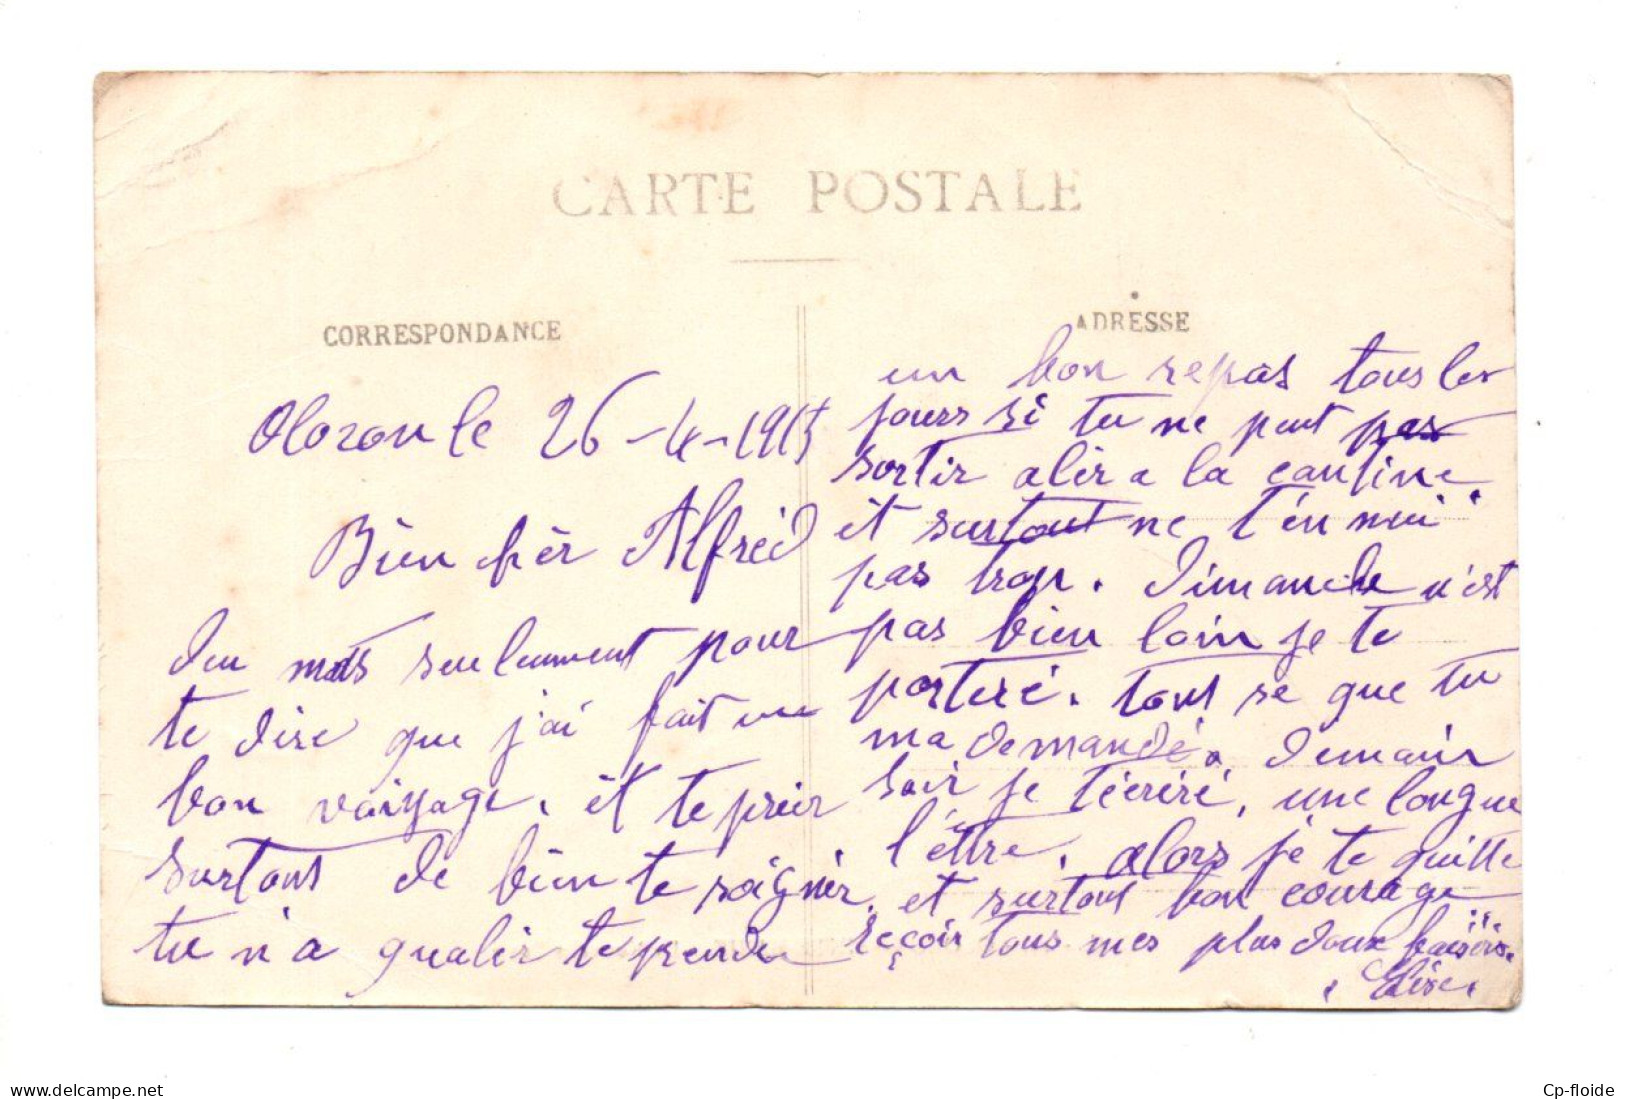 CARTE POSTALE
CORRESPONDANCE
Oloron le 26-4-1915
Bien chèr Alfred
deu mots seulement pour
te dire que j'ai fait un
bon voiyage. et te prièr
surtout de bien te soignèr.
tu n'a qualèr te prendre
ADRESSE
un bon repas tous les
jours si tu ne peut pas
sortir alèr a la cantine
et surtout ne t'énnui
pas trop. dimanche n'est
pas bien loin je te
porteré. tout se que tu
ma demandé. demain
soir je técriré, une longue
l'éttre. alors je te quitte
et surtout bon courage
reçoir tous mes plus doux baisérs.
Elise.
www.delcampe.net
Cp-floide